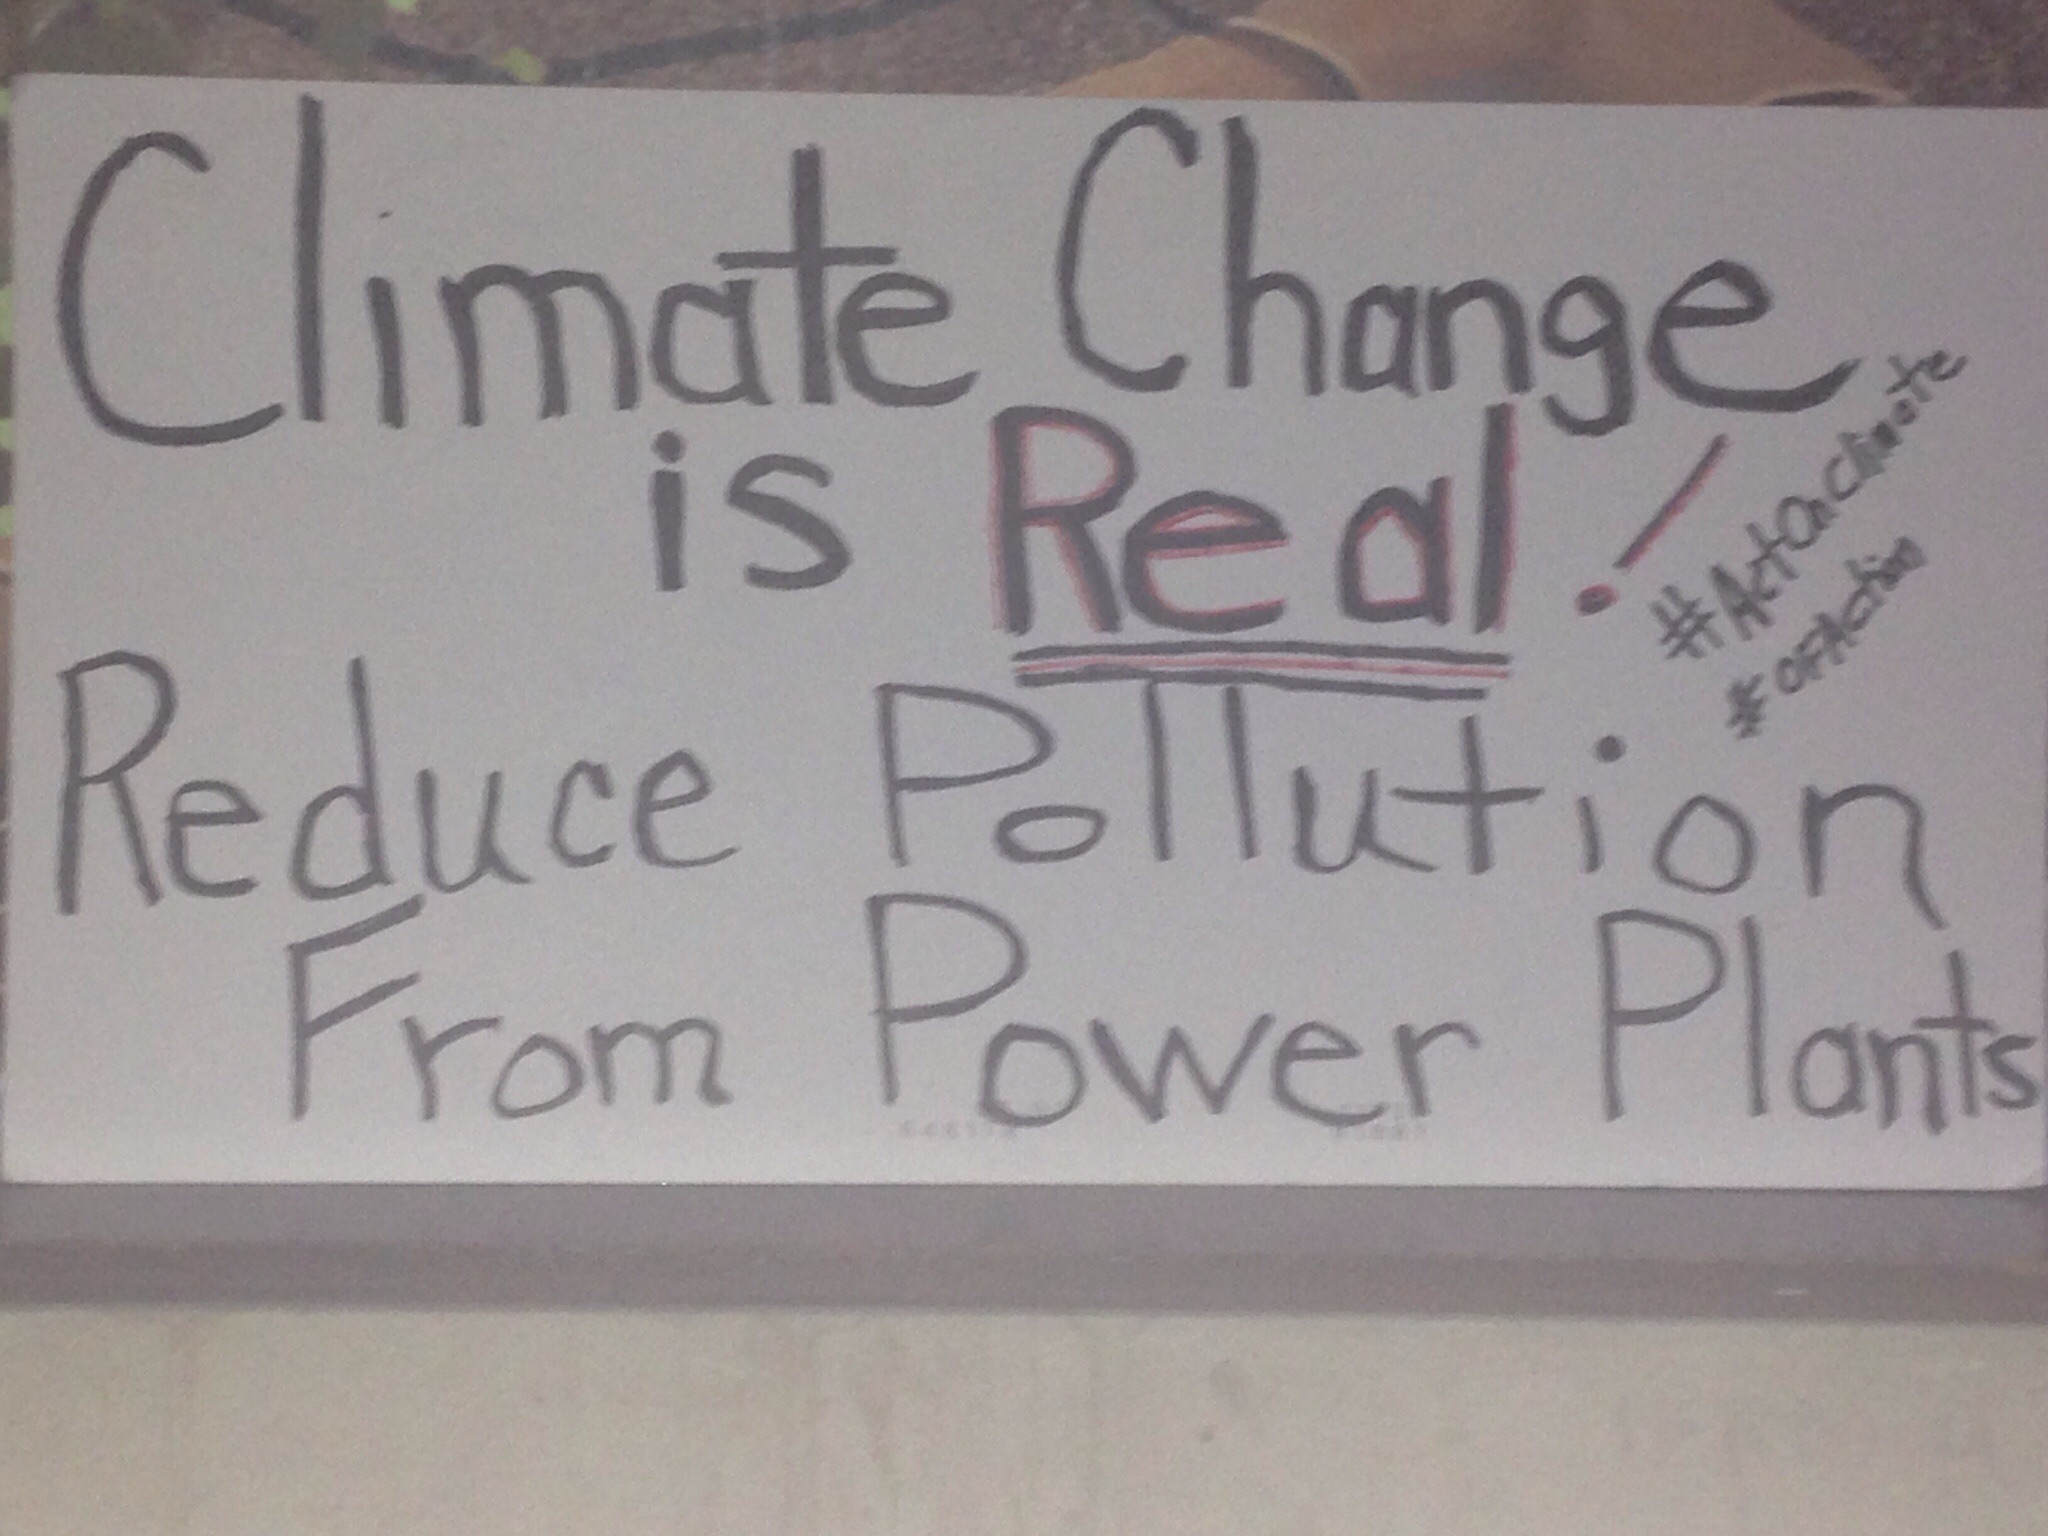 Climate Change
is Real!
#ActOnClimate
#OFAction
Reduce Pollution
From Power Plants